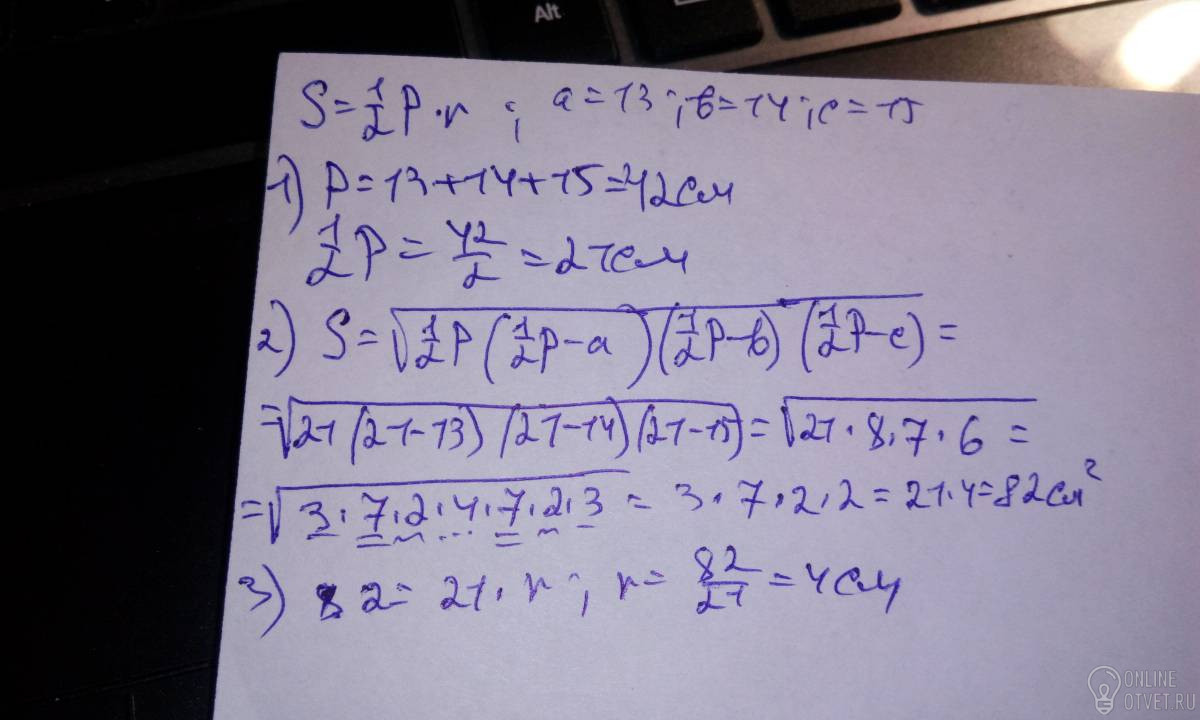 Alt
S = 1/2 P · r ; a = 13 ; b = 14 ; c = 15
1) P = 13 + 14 + 15 = 42 см
1/2 P = 42/2 = 21 см
2) S = √(1/2 P (1/2 P - a) (1/2 P - b) (1/2 P - c)) =
= √(21 (21 - 13) (21 - 14) (21 - 15)) = √(21 · 8 · 7 · 6) =
= √(3 · 7 · 2 · 4 · 7 · 2 · 3) = 3 · 7 · 2 · 2 = 21 · 4 = 82 см²
3) 82 = 21 · r ; r = 82/21 = 4 см
ONLINE
OTVET.RU